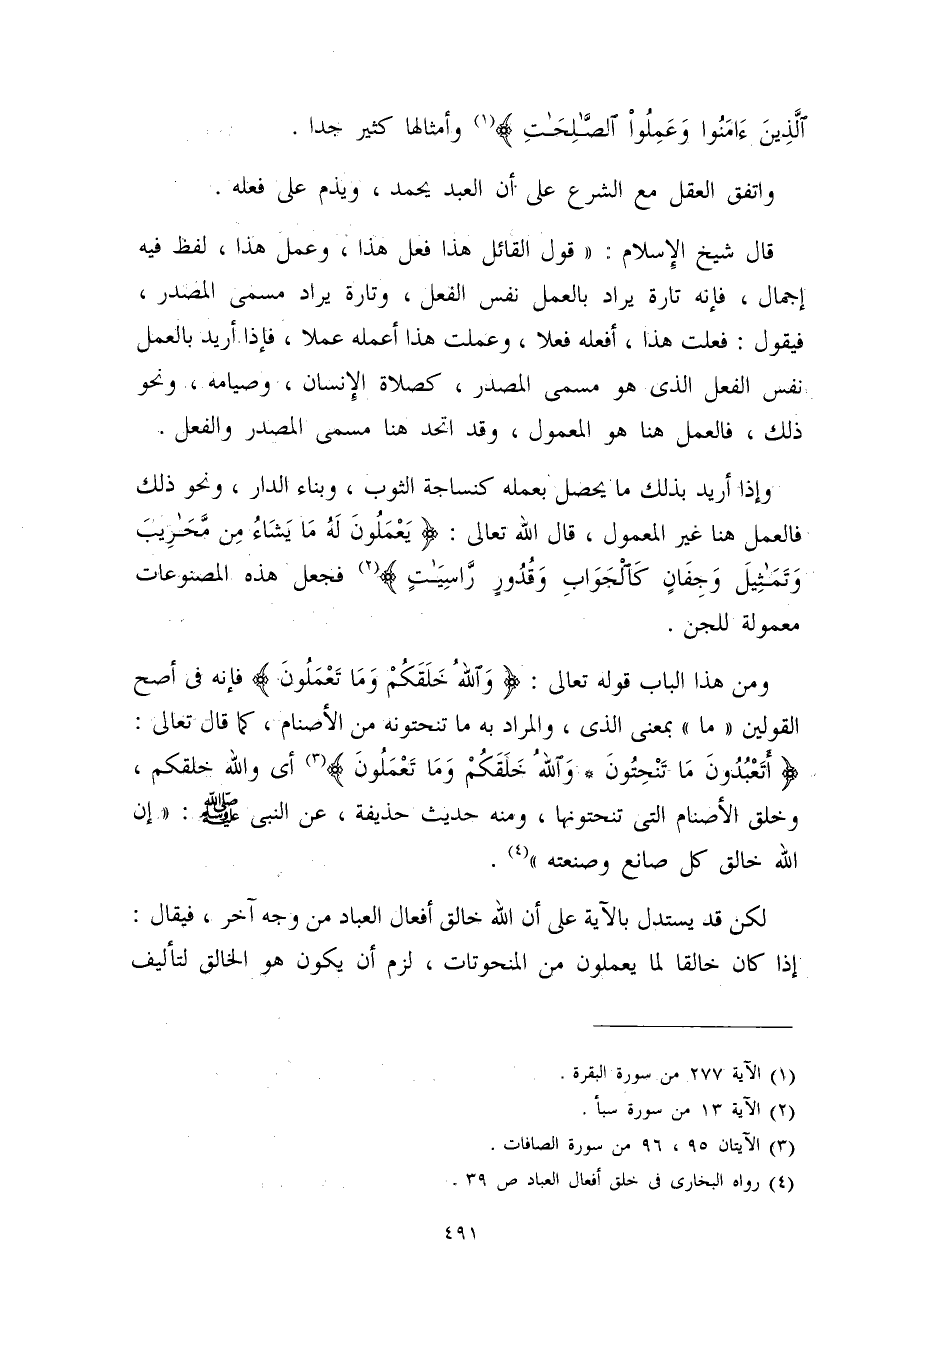 ٱلَّذِينَ ءَامَنُوا وَعَمِلُواْ ٱلصَّٰلِحَٰتِ ﴾(١) وأمثالها كثير جدا .
واتفق العقل مع الشرع على أن العبد يحمد ، ويذم على فعله .
قال شيخ الإسلام : « قول القائل هذا فعل هذا ، وعمل هذا ، لفظ فيه
إجمال ، فإنه تارة يراد بالعمل نفس الفعل ، وتارة يراد مسمى المصدر ،
فيقول : فعلت هذا ، أفعله فعلا ، وعملت هذا أعمله عملا ، فإذا أريد بالعمل
نفس الفعل الذى هو مسمى المصدر ، كصلاة الإنسان ، وصيامه ، ونحو
ذلك ، فالعمل هنا هو المعمول ، وقد اتحد هنا مسمى المصدر والفعل .
وإذا أريد بذلك ما يحصل بعمله كنساجة الثوب ، وبناء الدار ، ونحو ذلك
فالعمل هنا غير المعمول ، قال الله تعالى : ﴿ يَعْمَلُونَ لَهُ مَا يَشَاءُ مِن مَّحَٰرِيبَ
وَتَمَٰثِيلَ وَجِفَانٍ كَٱلْجَوَابِ وَقُدُورٍ رَّاسِيَٰتٍ ﴾(٢) فجعل هذه المصنوعات
معمولة للجن .
ومن هذا الباب قوله تعالى : ﴿ وَٱللَّهُ خَلَقَكُمْ وَمَا تَعْمَلُونَ ﴾ فإنه فى أصح
القولين « ما » بمعنى الذى ، والمراد به ما تنحتونه من الأصنام ، كما قال تعالى :
﴿ أَتَعْبُدُونَ مَا تَنْحِتُونَ * وَٱللَّهُ خَلَقَكُمْ وَمَا تَعْمَلُونَ ﴾(٣) أى والله خلقكم ،
وخلق الأصنام التى تنحتونها ، ومنه حديث حذيفة ، عن النبى ﷺ : « إن
الله خالق كل صانع وصنعته »(٤) .
لكن قد يستدل بالآية على أن الله خالق أفعال العباد من وجه آخر ، فيقال :
إذا كان خالقا لما يعملون من المنحوتات ، لزم أن يكون هو الخالق لتأليف
(١) الآية ٢٧٧ من سورة البقرة .
(٢) الآية ١٣ من سورة سبأ .
(٣) الآيتان ٩٥ ، ٩٦ من سورة الصافات .
(٤) رواه البخارى فى خلق أفعال العباد ص ٣٩ .
٤٩١